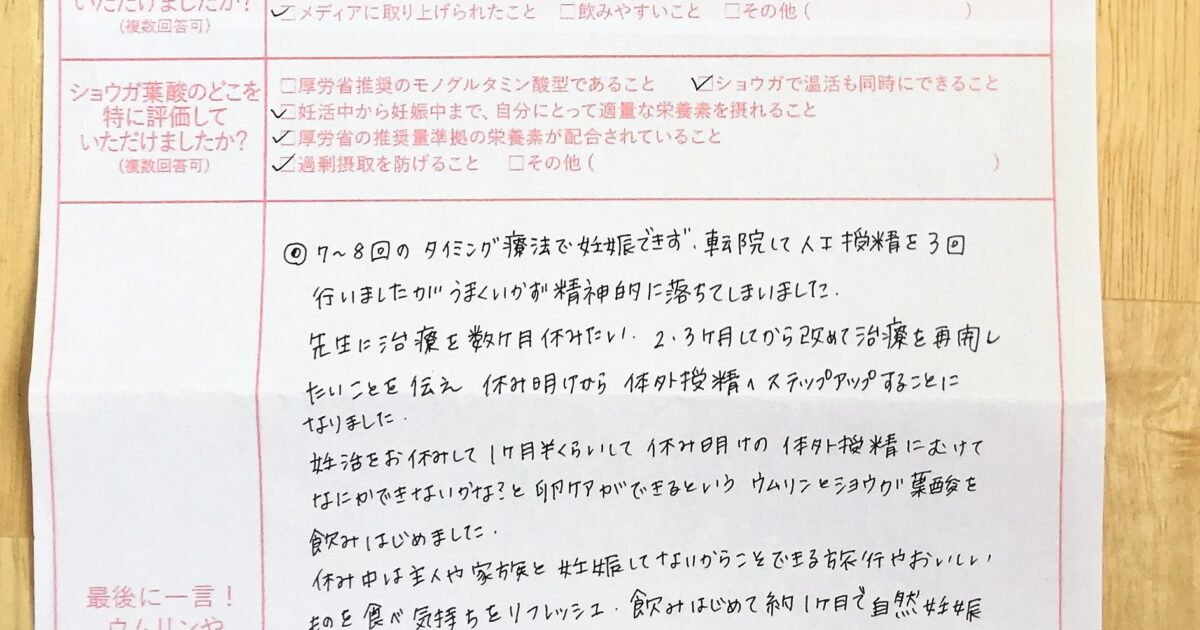 いただけましたか?
(複数回答可)
☑メディアに取り上げられたこと □飲みやすいこと □その他( )
ショウガ葉酸のどこを
特に評価して
いただけましたか?
(複数回答可)
□厚労省推奨のモノグルタミン酸型であること ☑ショウガで温活も同時にできること
☑妊活中から妊娠中まで、自分にとって適量な栄養素を摂れること
☑厚労省の推奨量準拠の栄養素が配合されていること
☑過剰摂取を防げること □その他( )
最後に一言!
ウムリンや
◎7〜8回のタイミング療法で妊娠できず、転院して人工授精を3回
行いましたがうまくいかず精神的に落ちてしまいました.
先生に治療を数ヶ月休みたい. 2.3ヶ月してから改めて治療を再開し
たいことを伝え 休み明けから 体外授精へステップアップすることに
なりました.
妊活をお休みして1ヶ月半くらいして 休み明けの 体外授精にむけて
なにかできないかな?と 卵ケアができるという ウムリンとショウガ葉酸を
飲みはじめました.
休み中は主人や家族と 妊娠してないからことできる旅行やおいしい
ものを食べ 気持ちをリフレッシュ. 飲みはじめて約1ヶ月で自然妊娠